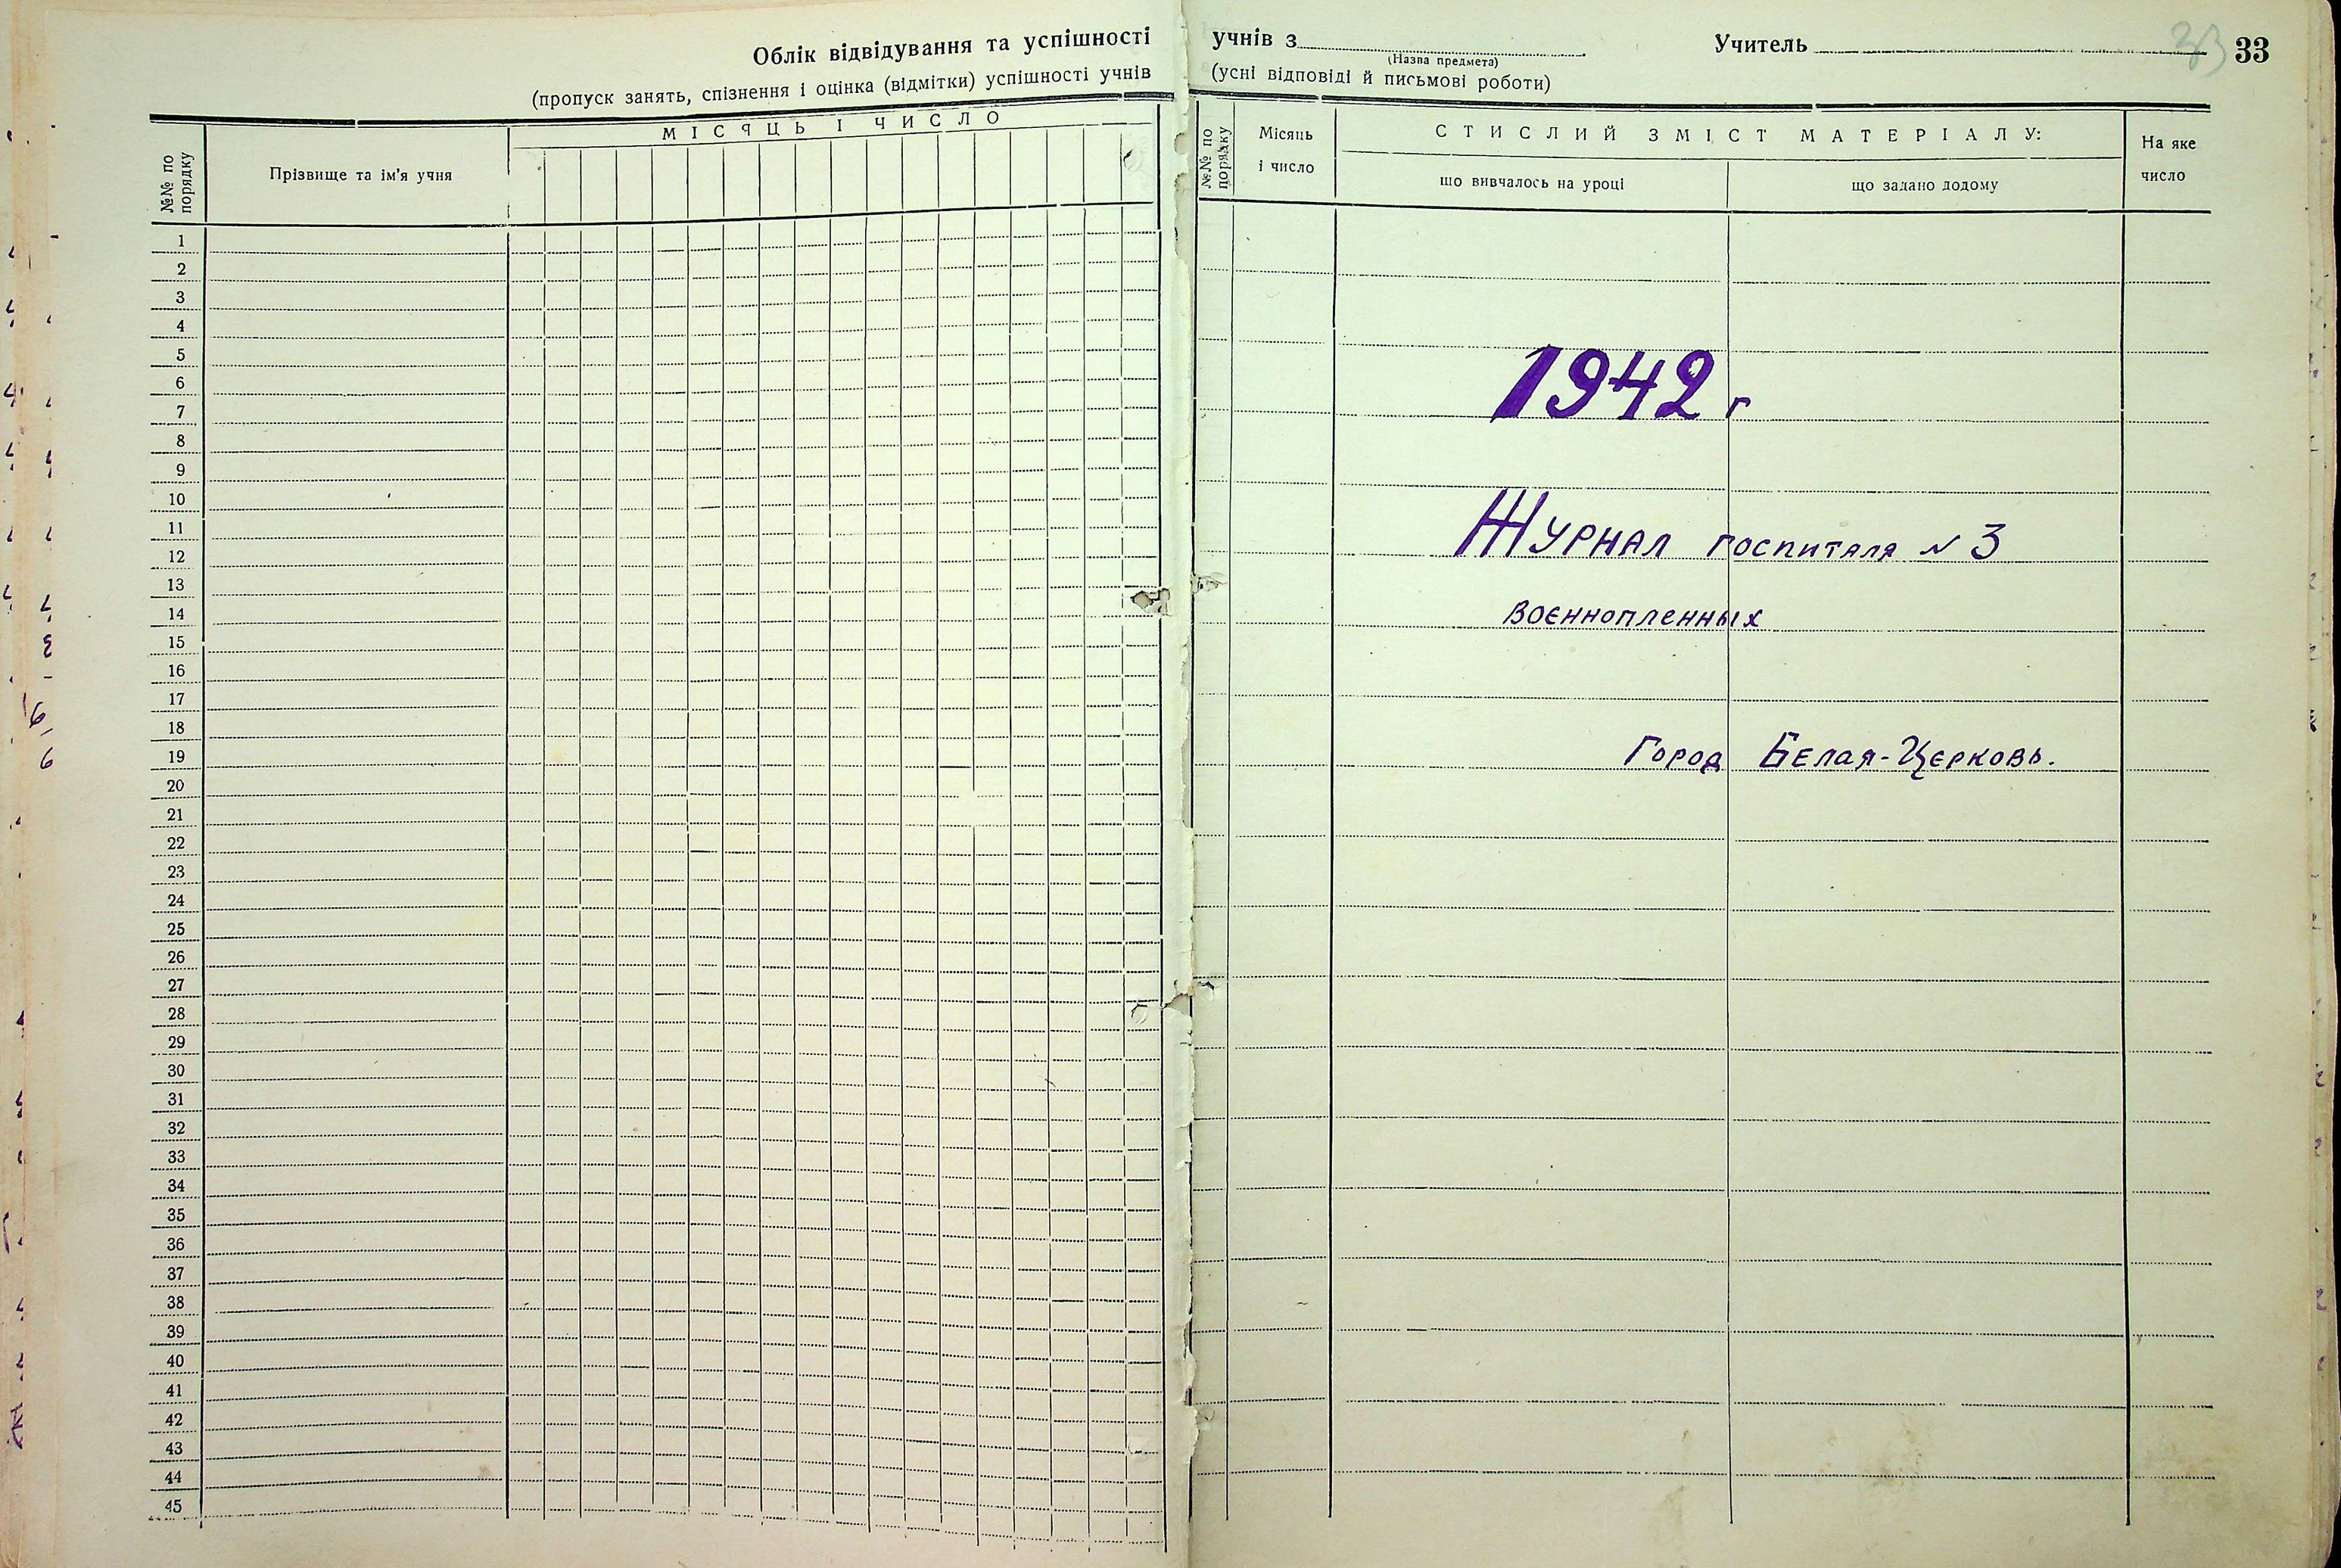 Облік відвідування та успішності
(пропуск занять, спізнення і оцінка (відмітки) успішності учнів
№№ по порядку
Прізвище та ім'я учня
МІСЯЦЬ І ЧИСЛО
1
2
3
4
5
6
7
8
9
10
11
12
13
14
15
16
17
18
19
20
21
22
23
24
25
26
27
28
29
30
31
32
33
34
35
36
37
38
39
40
41
42
43
44
45
учнів з
(Назва предмета)
Учитель
33
33
(усні відповіді й письмові роботи)
№№ по порядку
Місяць
і число
СТИСЛИЙ ЗМІСТ МАТЕРІАЛУ:
що вивчалось на уроці
що задано додому
На яке
число
1942 г
Журнал госпиталя № 3
военнопленных
Город Белая-Церковь.